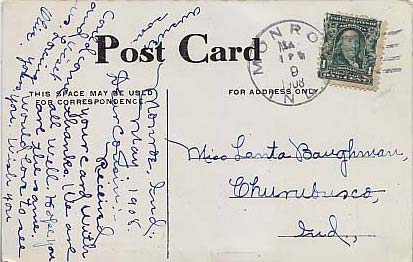 Post Card
THIS SPACE MAY BE USED
FOR CORRESPONDENCE.
FOR ADDRESS ONLY.
MONROE
MAY
9
1908
IND.
1
Miss Santa Baughman,
Churubusco,
Ind.,
Monroe, Ind.,
May, 1908
Dear Cousin:-
Received
your card. With
many thanks. We are
all well. Hope you
are the same
would love to see
you. Wish you